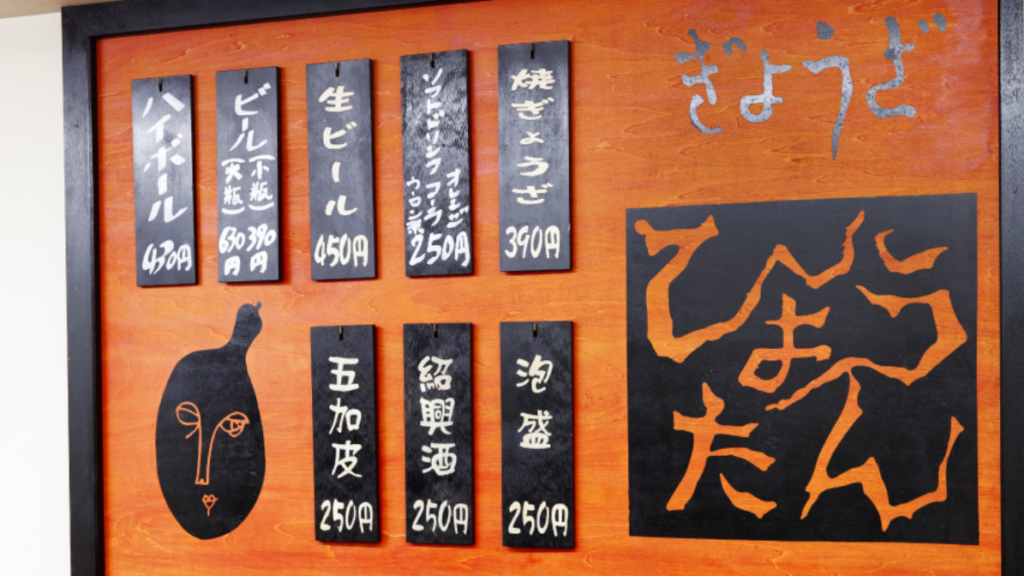 ぎょうざ
ひょうたん
焼ぎょうざ
390円
ソフトドリンク
オレンジ
コーラ
ウーロン茶
250円
生ビール
450円
ビール
(小瓶)
390円
(大瓶)
630円
ハイボール
430円
泡盛
250円
紹興酒
250円
五加皮
250円